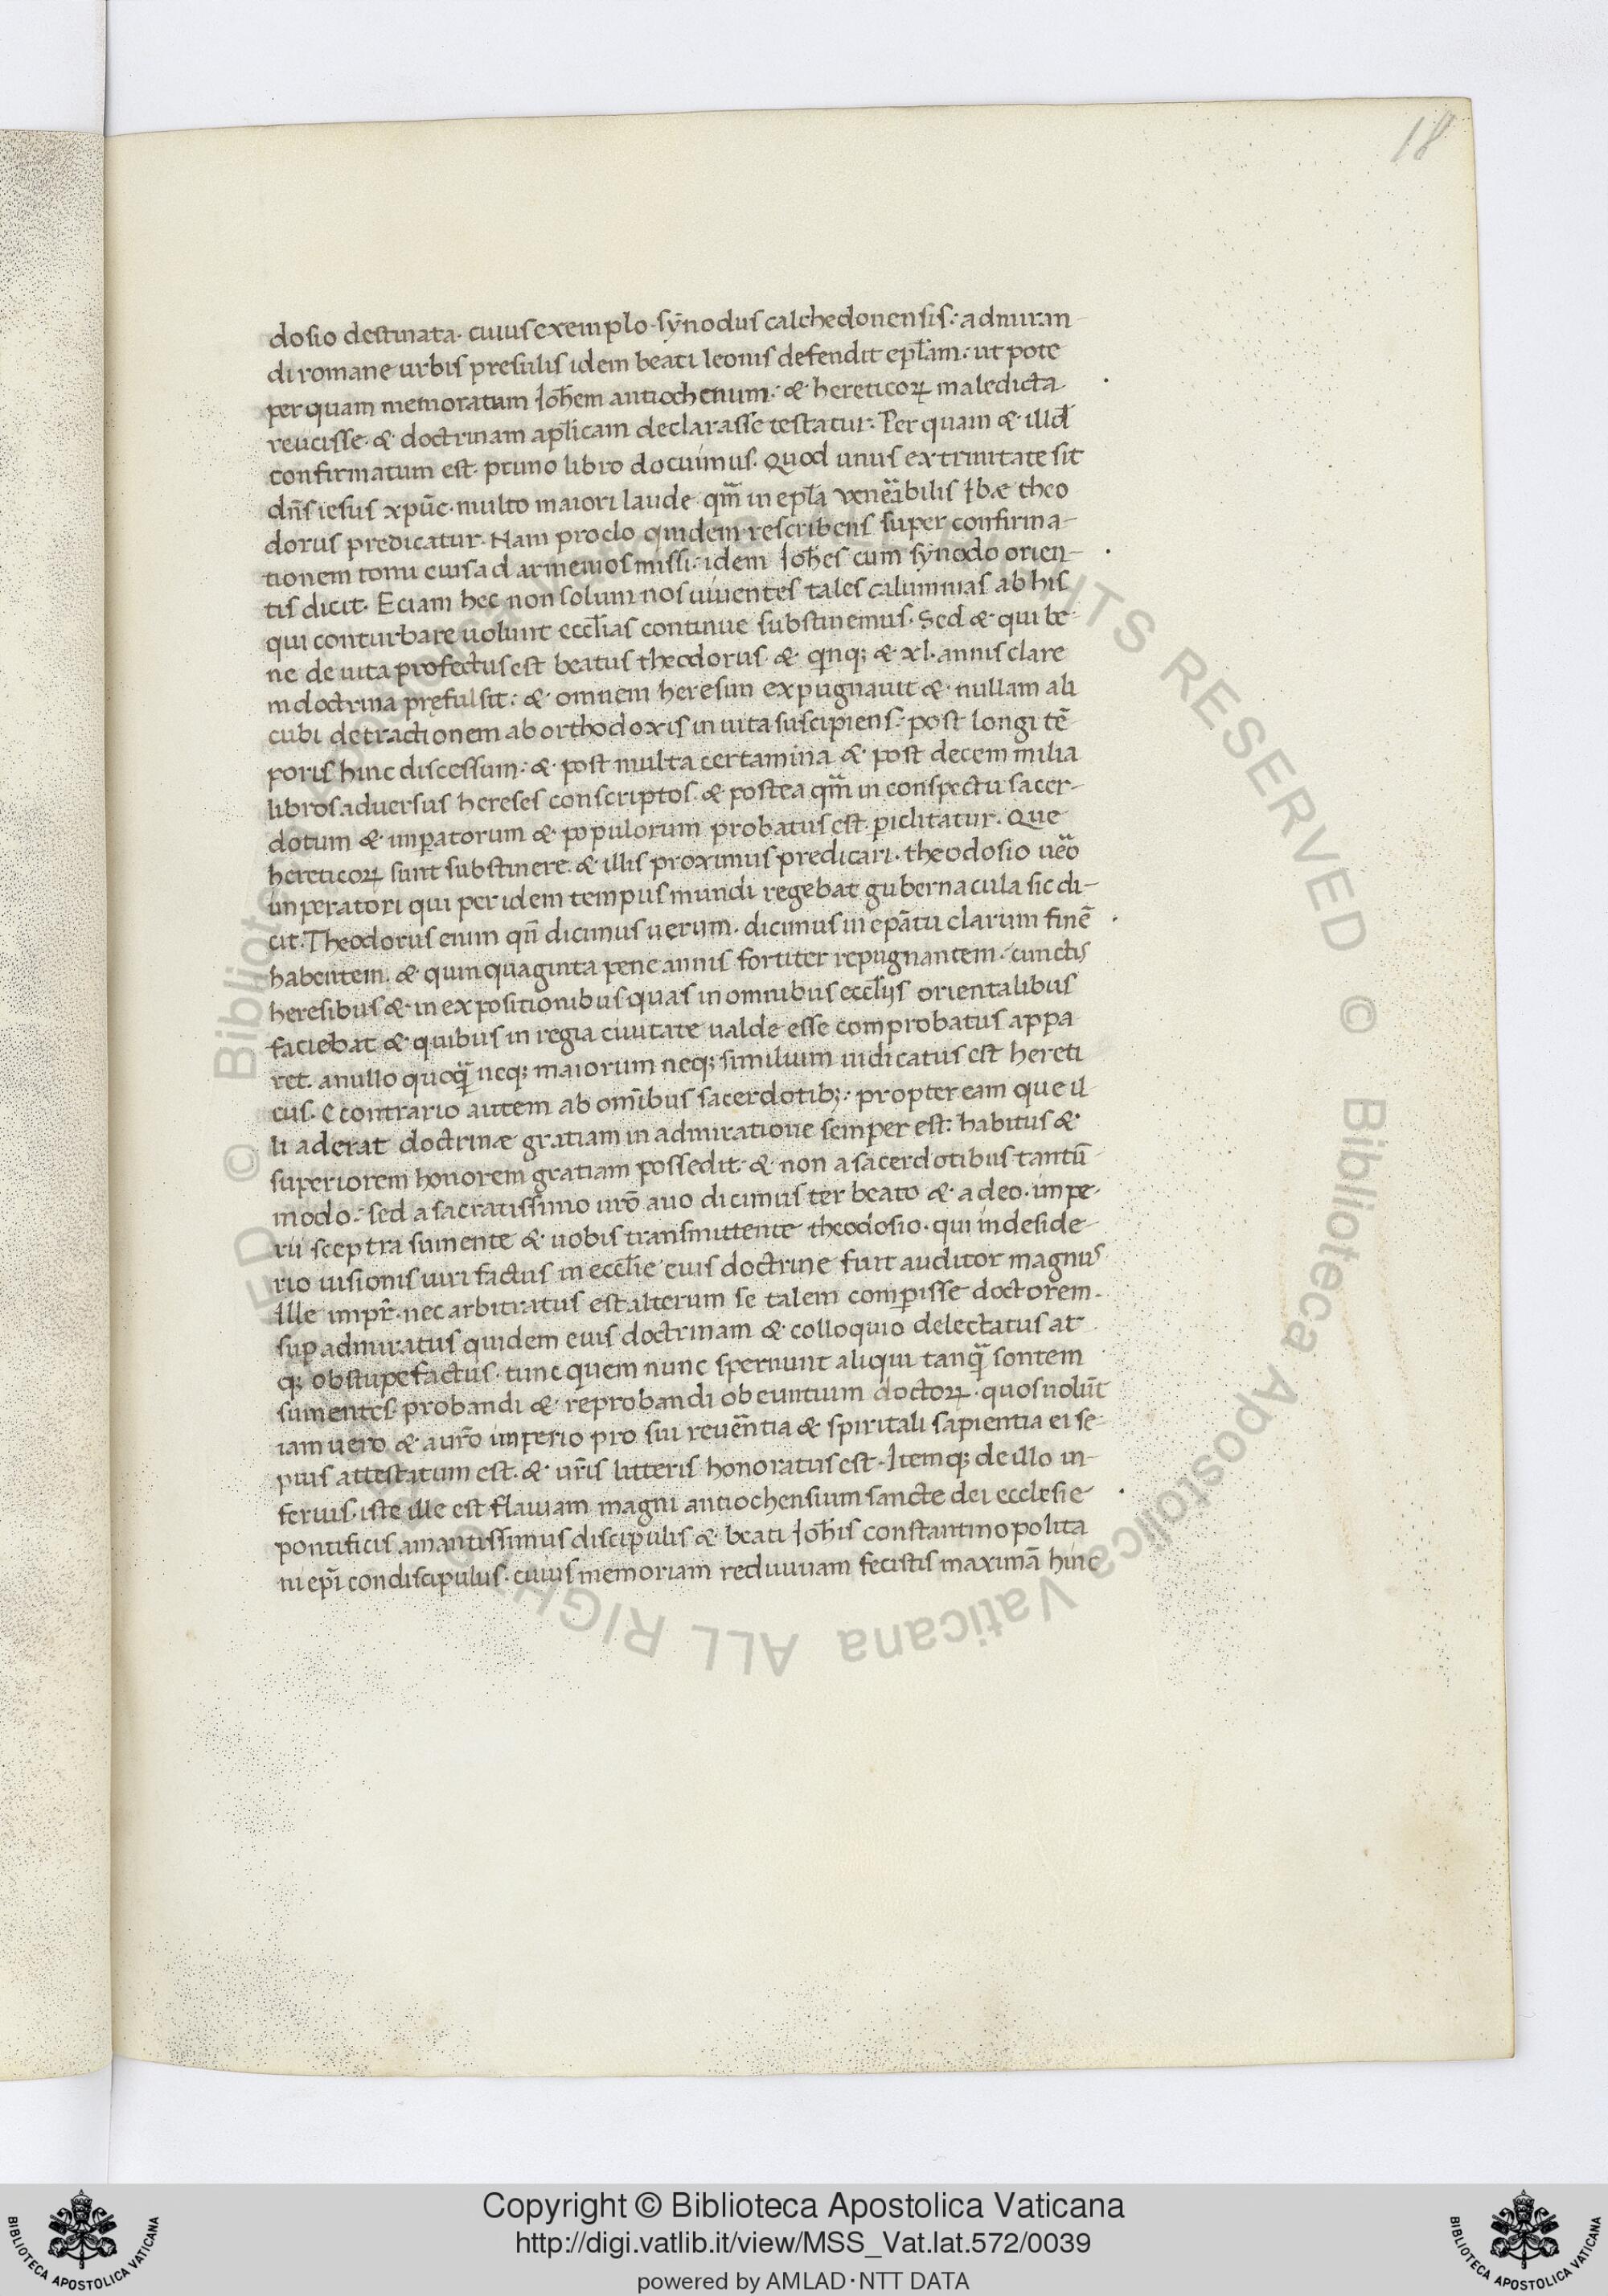 18
dosio destinata. cuius exemplo synodus calchedonensis: admiran-
di romane urbis presulis idem beati leonis defendit epłam: ut pote
per quam memoratum Ioħem antiochenum: & hereticoꝝ maledicta
reucisse. & doctrinam apłicam declarasse testatur. Per quam & illđ
confirmatum est. primo libro docuimus. Quod unus ex trinitate sit
dn̄s iesus xpūc. multo maiori laude qm̄ in epła ven̄abilis Ibæ theo
dorus predicatur. Nam proclo quidem rescribens super confirma-
tionem tomi eius ad armenios missi. idem Ioħes cum synodo orien-
tis dicit. Eciam hec non solum nos uiuentes tales calumnias ab his
qui conturbare uolunt eccłias continue substinemus. Sed & qui be-
ne de uita profectus est beatus theodorus. & qinqꝫ & xl. annis clare
in doctrina pręfulsit: & omnem heresim expugnauit & nullam ali
cubi detractionem ab orthodoxis in uita suscipiens: post longi tē
poris hinc discessum: & post multa certamina & post decem milia
libros aduersus hereses conscriptos. & postea qm̄ in conspectu sacer-
dotum & imꝑatorum & populorum probatus est. ꝑiclitatur. Que
hereticoꝝ sunt substinere. & illis proximus predicari. theodosio ūeo
imperatori qui per idem tempus mundi regebat gubernacula sic di-
cit. Theodorus enim qn̄ dicimus uerum. dicimus in epātu clarum finē
habentem. & quinquaginta pene annis fortiter repugnantem. cunctis
heresibus & in expositionibus quas in omnibus eccłijs orientalibus
faciebat & quibus in regia ciuitate ualde esse comprobatus appa
ret. anullo quoqū neqꝫ maiorum neqꝫ similium iudicatus est hereti
cus. E contrario autem ab omībus sacerdotibꝫ: propter eam que il-
li aderat doctrinæ gratiam in admiratione semper est: habitus &
superiorem honorem gratiam possedit. & non a sacerdotibus tantū-
modo: sed a sacratissimo ur̄o auo dicimus ter beato & adeo. impe-
rii sceptra sumente & uobis transmittente theodosio. qui in deside-
rio uisionis uiri factus in eccłie eius doctrine fuit auditor magnus
Ille impr̄. nec arbitratus est alterum se talem comꝑisse doctorem.
suꝑ admiratus quidem eius doctrinam & colloquio delectatus at
qꝫ obstupefactus. tunc quem nunc spernunt aliqui tanqū sontem
sumentes. probandi & reprobandi obeuntium doctoꝝ. quos uolūt
iam uero & aur̄o imperio pro sui reuēntia & spiritali sapientia ei se-
pius attestatum est. & ur̄is litteris honoratus est. Itemqꝫ de illo in-
ferius. iste ille est flauiam magni antiochensium sancte dei ecclesie
pontificis amantissimus discipulis & beati Ioħis constantinopolita
ni epī condiscipulus. cuius memoriam rediuiuam fecistis maximā hinc
Copyright © Biblioteca Apostolica Vaticana
http://digi.vatlib.it/view/MSS_Vat.lat.572/0039
powered by AMLAD·NTT DATA
BIBLIOTECA APOSTOLICA VATICANA
BIBLIOTECA APOSTOLICA VATICANA
© Biblioteca Apostolica Vaticana ALL RIGHTS RESERVED